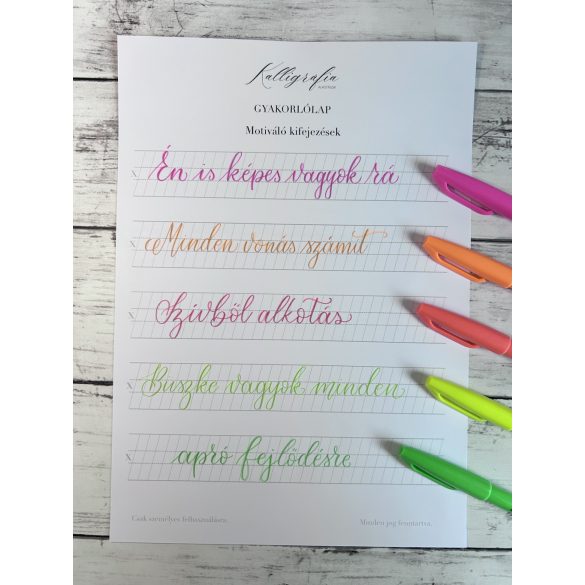 Kalligrafia
GYAKORLÓLAP
Motiváló kifejezések
Én is képes vagyok rá
Minden vonás számít
Szívből alkotás
Büszke vagyok minden
apró fejlődésre
Csak személyes felhasználásra.
Minden jog fenntartva.